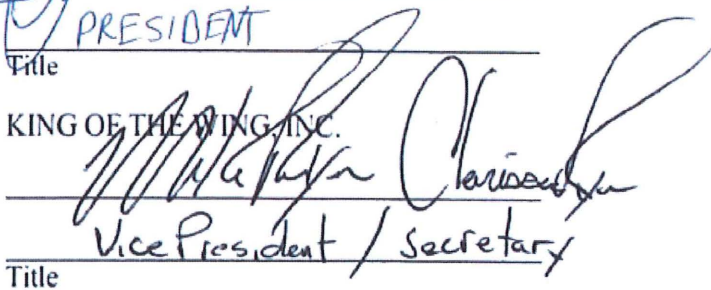 PRESIDENT
Title
KING OF THE WING, INC.
Clarissa
Vice President / Secretary
Title